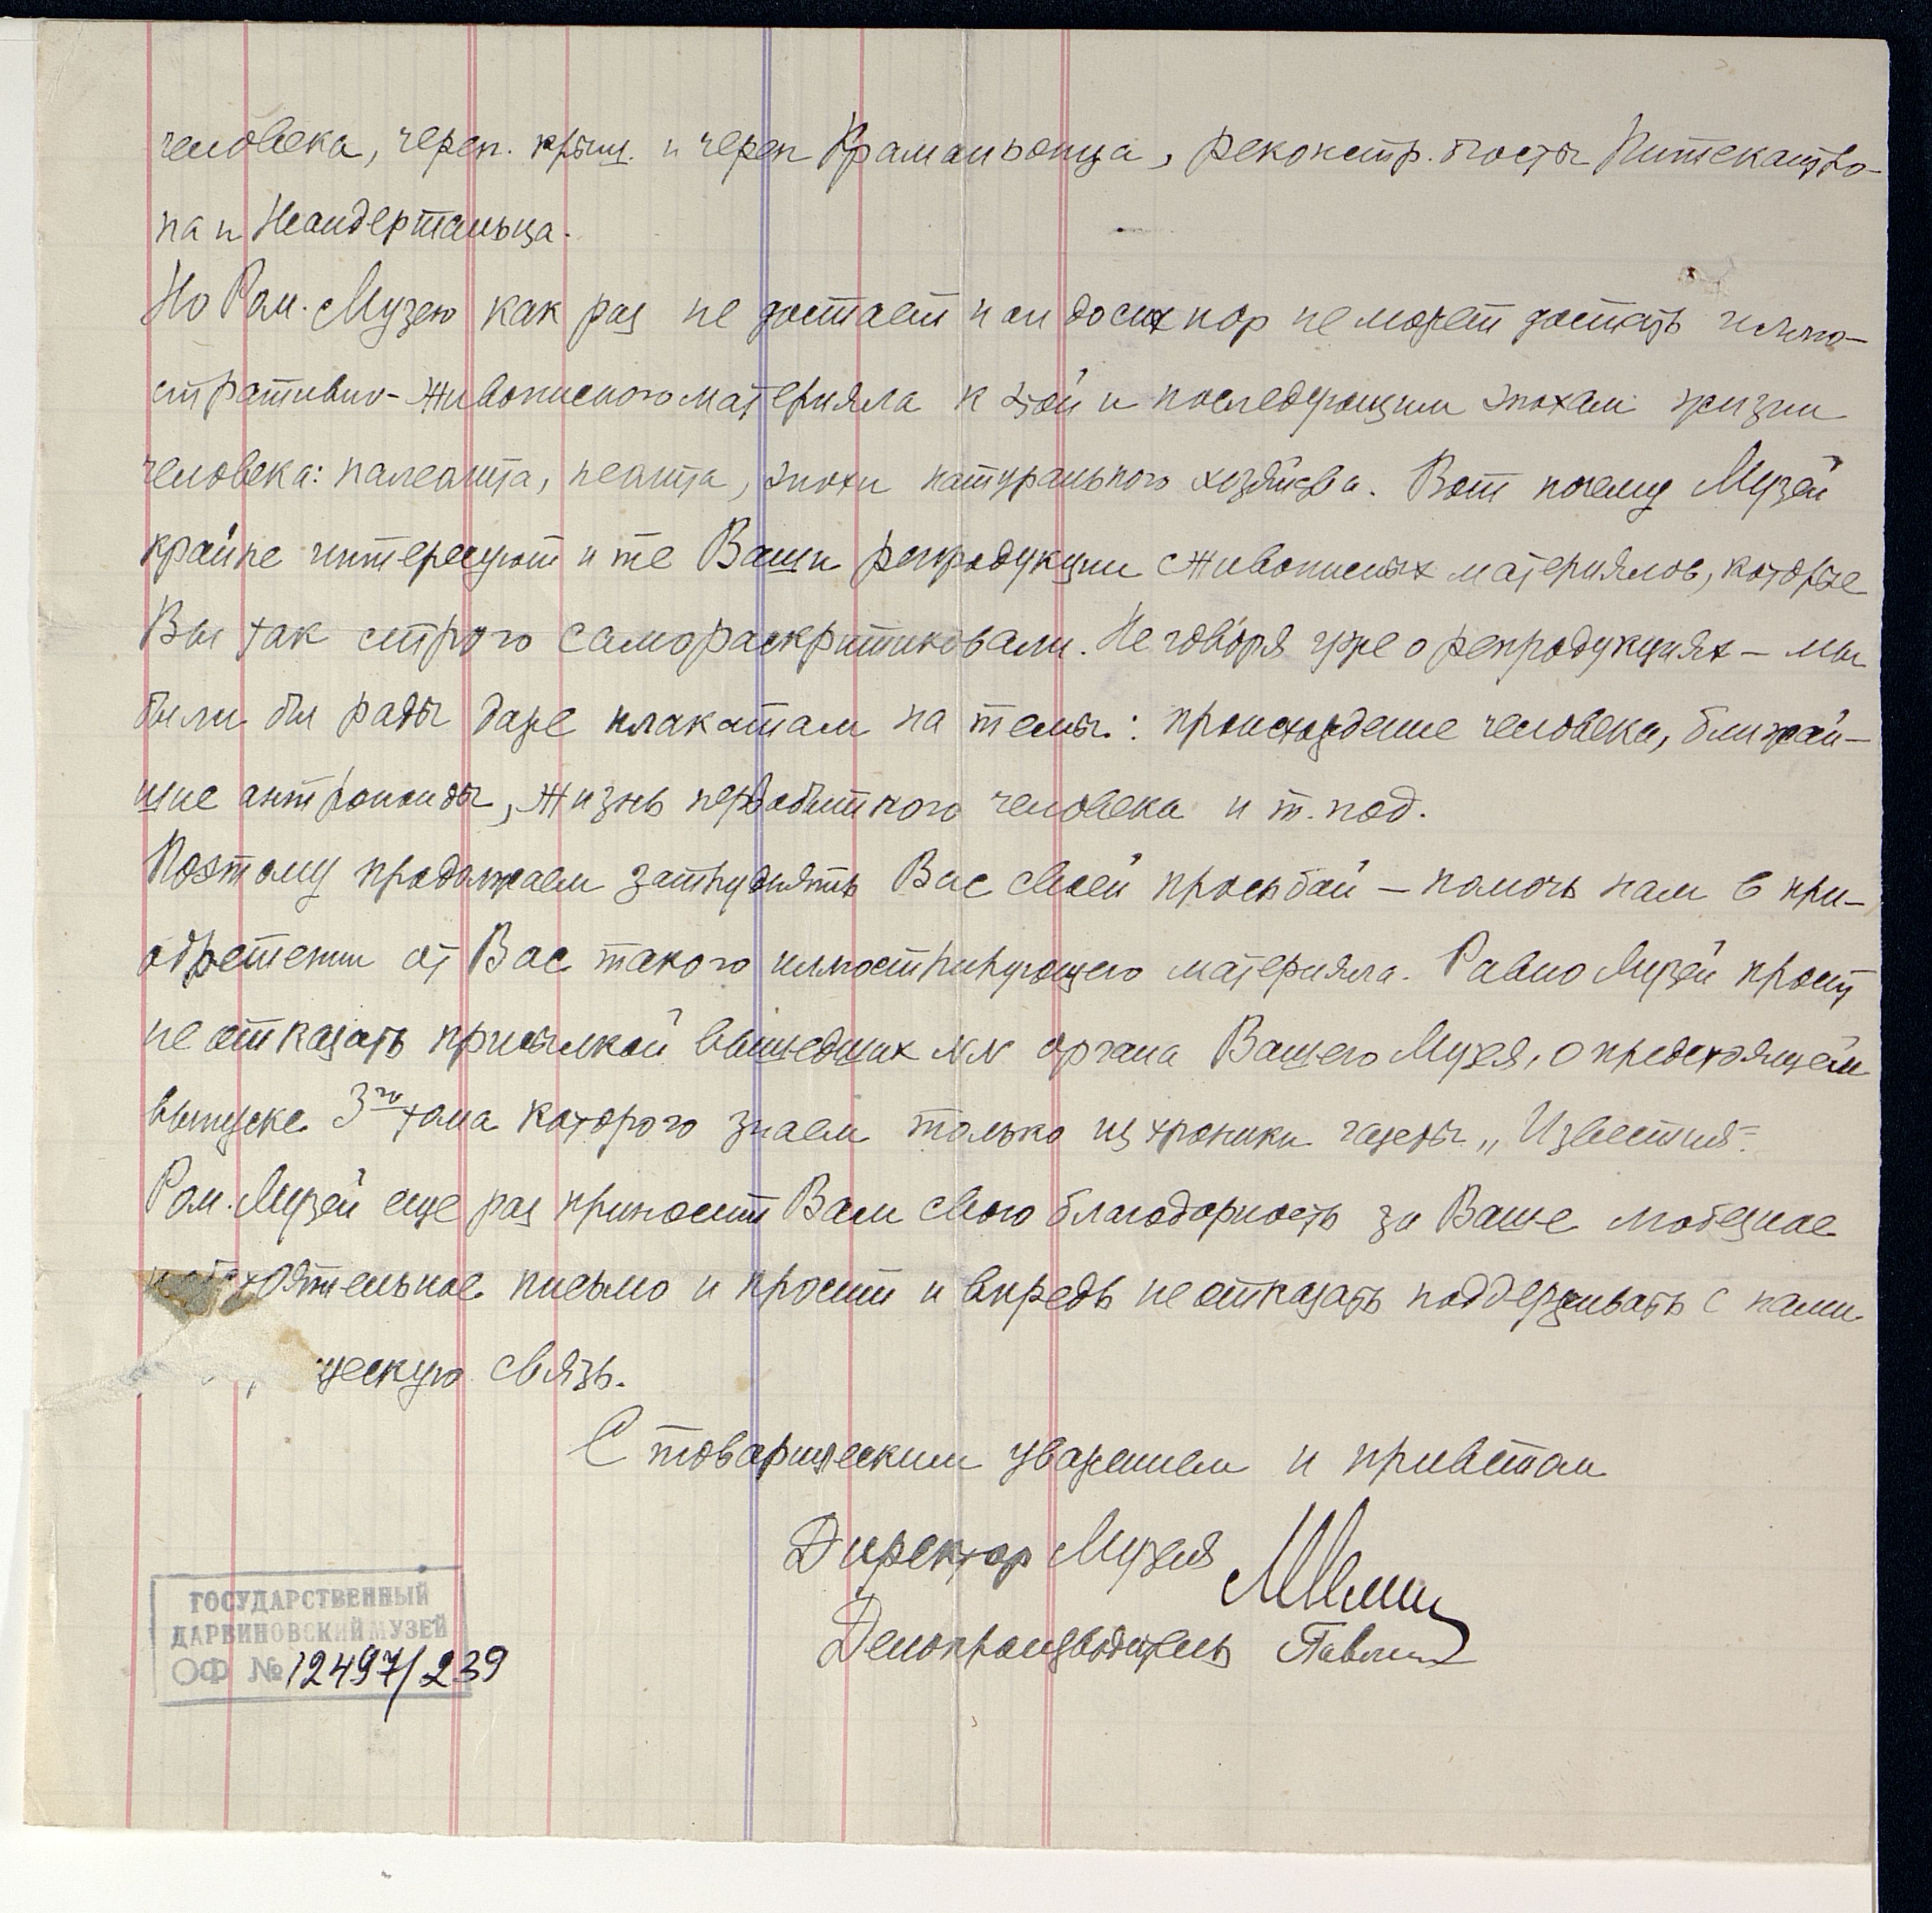 человека, череп. крыш. и череп Краманьонца, реконстр. бюсты Питекантро-
па и Неандертальца.
Но Ром. Музею как раз не достает и он досих пор не может достать иллю-
стративно-живописного материяла к этой и последующим эпохам жизни
человека: палеолита, неолита, эпохи натурального хозяйства. Вот почему Музей
крайне интересуют и те Ваши репродукции с живописных материялов, которые
Вы так строго самораскритиковали. Не говоря уже о репродукциях – мы
были бы рады даже плакатам на темы: происхождение человека, ближай-
шие антропоиды, жизнь первобытного человека и т. под.
Поэтому продолжаем затруднять Вас своей просьбой – помочь нам в при-
обретении от Вас такого иллюстрирующего материяла. Равно Музей просит
не отказать присылкой вышедших NN органа Вашего Музея, о предстоящем
выпуске 3го тома которого знаем только из хроники газеты „Известия".
Ром. Музей еще раз приносит Вам свою благодарность за Ваше любезное
обстоятельное письмо и просит и впредь не отказать поддерживать с нами
ческую связь.
С товарищеским уважением и приветом
Директор Музея
Делопроизводитель
ГОСУДАРСТВЕННЫЙ
ДАРВИНОВСКИЙ МУЗЕЙ
ОФ № 12497/239